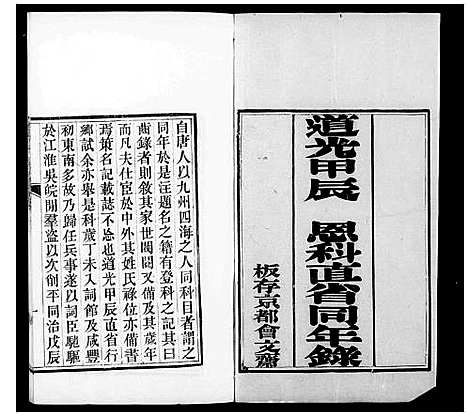 道光甲辰 恩科直省同年錄
板存京都會文齋
自唐人以九州四海之人同科目者謂之
同年於是汪題名之籍有登科之記其曰
齒錄者則敘其家世閥閱又備及其年歲
而凡夫仕宦於中外其姓氏祿位亦備書
焉策名記載志不忘也道光甲辰直省行
鄉試余亦舉是科歲丁未入詞館及咸豐
初東南多故乃歸任兵事遂以詞臣馳驅
於江淮吳皖閒羣盜以次創平同治戊辰
一